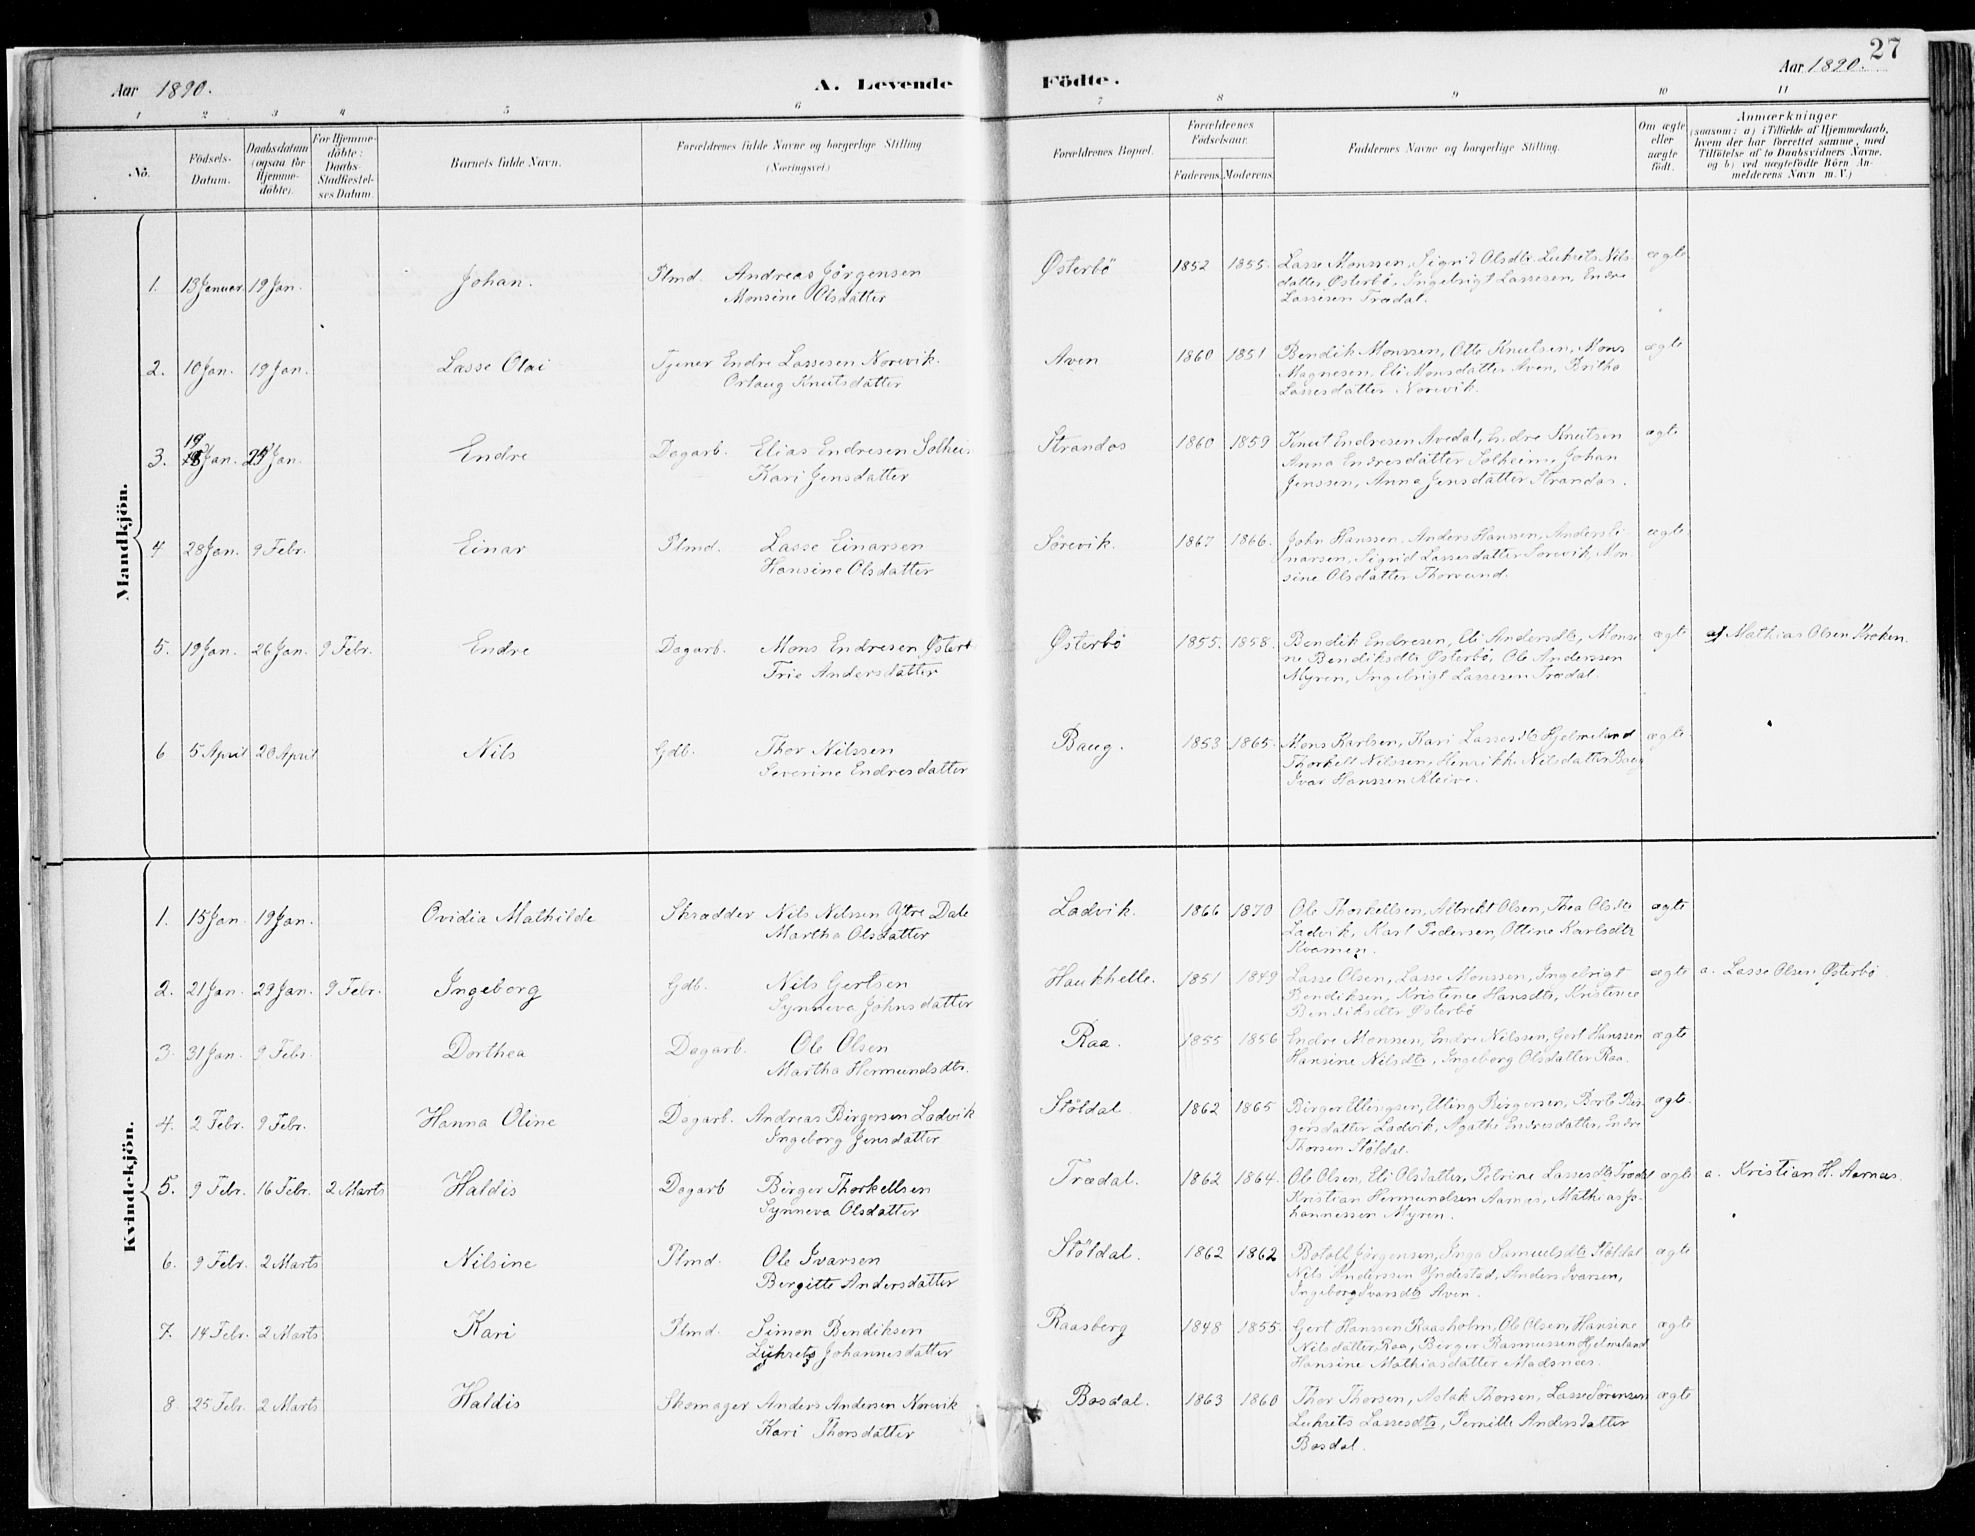 27
Aar 1890.
A. Levende Födte.
Aar 1890.
1 2 3 4 5 6 7 8 9 10 11
No.
Födsels-
Datum.
Daabsdatum
(ogsaa for
Hjemme-
döbte).
For Hjemme-
döbte:
Daabs-
Stadfæstel-
ses Datum.
Barnets fulde Navn.
Forældrenes fulde Navne og borgerlige Stilling
(Næringsvei.)
Forældrenes Bopæl.
Forældrenes
Födselsaar.
Faderens. Moderens.
Faddernes Navne og borgerlige Stilling.
Om ægte
eller
uægte
födt.
Anmærkninger
(saasom: a) i Tilfælde af Hjemmedaab,
hvem der har forrettet samme, med
Tilföielse af to Daabsvidners Navne,
og b) ved uægtefödte Börn An-
melderens Navn m.V.)
Mandkjön.
1. 13 Januar 19 Jan. Johan. Plmd. Andreas Jørgensen
Monsine Olsdatter
Østerbö 1852 1855. Lasse Monssen, Sigrid Olsdtr. Lukrets Nils-
datter Østerbö, Ingebrigt Lassesen, Endre
Lassesen Trædal.
ægte
2. 10 Jan. 19 Jan. Lasse Olai Tjener Endre Lassesen Norevik.
Orlaug Knutsdatter
Aven 1860 1851 Bendik Monssen, Otte Knutsen, Mons
Magnesen, Eli Monsdatter Aven, Britha
Lassesdatter Norevik.
ægte
3. 19 Jan. 25 Jan. Endre Dagarb. Elias Endresen Solheim
Kari Jensdatter
Strandos 1860 1859 Knut Endresen Avedal, Endre Knutsen
Anna Endresdatter Solheim, Johan
Jenssen, Anna Jensdatter Strandos.
ægte
4 28 Jan. 9 Febr. Einar Plmd. Lasse Einarsen
Hansine Olsdatter
Sørevik. 1867 1866. John Hanssen, Anders Hanssen, Anders Ei-
narsen, Sigrid Lassesdatter Sørevik, Mon-
sine Olsdatter Thorvund.
ægte
5. 19 Jan. 26 Jan. 9 Febr. Endre Dagarb. Mons Endresen Østerb
Trie Andersdatter
Østerbö 1855. 1858. Bendik Endresen, Eli Andersdtr, Monsi
ne Bendiksdtr Østerbö, Ole Anderssen
Myren, Ingebrigt Lassesen Trædal.
ægte af Mathias Olsen Kroken.
6 5 April 20 April Nils Gdb. Thor Nilssen
Severine Endresdatter
Baug. 1853 1865. Mons Karlsen, Kari Lassesdtr Hjelmeland
Thorkell Nilssen, Henrikke Nilsdatter Baug
Ivar Hanssen Kleive.
ægte
Kvindekjön.
1. 15 Jan. 19 Jan. Ovidia Mathilde Skrædder Nils Nilssen Ytre Dale
Martha Olsdatter
Ladvik. 1866 1870 Ole Thorkellsen, Albrekt Olsen, Thea Olsdtr
Ladvik, Karl Pedersen, Oltine Karlsdtr
Kvamen.
ægte
2. 21 Jan. 29 Jan. 9 Febr. Ingeborg Gdb. Nils Gertsen
Synneva Johnsdatter
Haukhelle. 1851 1849 Lasse Olsen, Lasse Monssen, Ingebrigt
Bendiksen, Kristence Hansdtr, Kristence
Bendiksdtr Østerbö
ægte a. Lasse Olsen Østerbö
3. 31 Jan. 9 Febr. Dorthea Dagarb. Ole Olsen
Martha Hermundsdtr.
Raa. 1855 1856 Endre Monsen, Endre Nilssen, Gert Hanssen
Hansine Nilsdtr, Ingeborg Olsdatter Raa.
ægte
4. 2 Febr. 9 Febr. Hanna Oline Dagarb. Andreas Birgersen Ladvik
Ingeborg Jensdatter
Stöldal 1862 1865 Birger Ellingsen, Elling Birgersen, Borb. Bir-
gersdatter Ladvik, Agathe Endresdatter, Endre
Thorsen Stöldal.
ægte.
5. 9 Febr. 16 Febr. 2 Marts Haldis Dagarb Birger Thorkellsen
Synneva Olsdatter
Trædal. 1862 1864. Ole Olsen, Eli Olsdatter, Petrine Lassesdtr Trædal
Kristian Hermundsen Aarnæs, Mathias Jo-
hannessen Myren.
ægte a. Kristian H. Aarnæs.
6. 9 Febr. 2 Marts Nilsine Plmd. Ole Ivarsen
Birgitte Andersdatter
Stöldal. 1862 1862 Botolf Jørgensen, Inga Samuelsdtr Stöldal
Nils Anderssen Yndestad, Anders Ivarsen,
Ingeborg Ivarsdtr Aven.
ægte
7. 14 Febr. 2 Marts Kari Plmd. Simon Bendiksen
Lukrets Johannesdatter
Raasberg 1848 1855. Gert Hanssen Raasholm, Ole Olsen, Hansine
Nilsdatter Raa, Birger Rasmussen Hjelmeland
Hansine Mathiasdatter Madsnæs.
ægte
8. 25 Febr. 2 Marts Haldis Skomager Anders Andersen Norevik
Kari Thorsdatter
Bosdal. 1863 1860 Thor Thorsen, Aslak Thorsen, Lasse Sörensen
Lukrets Lassesdtr, Pernille Andersdatter
Bosdal.
ægte